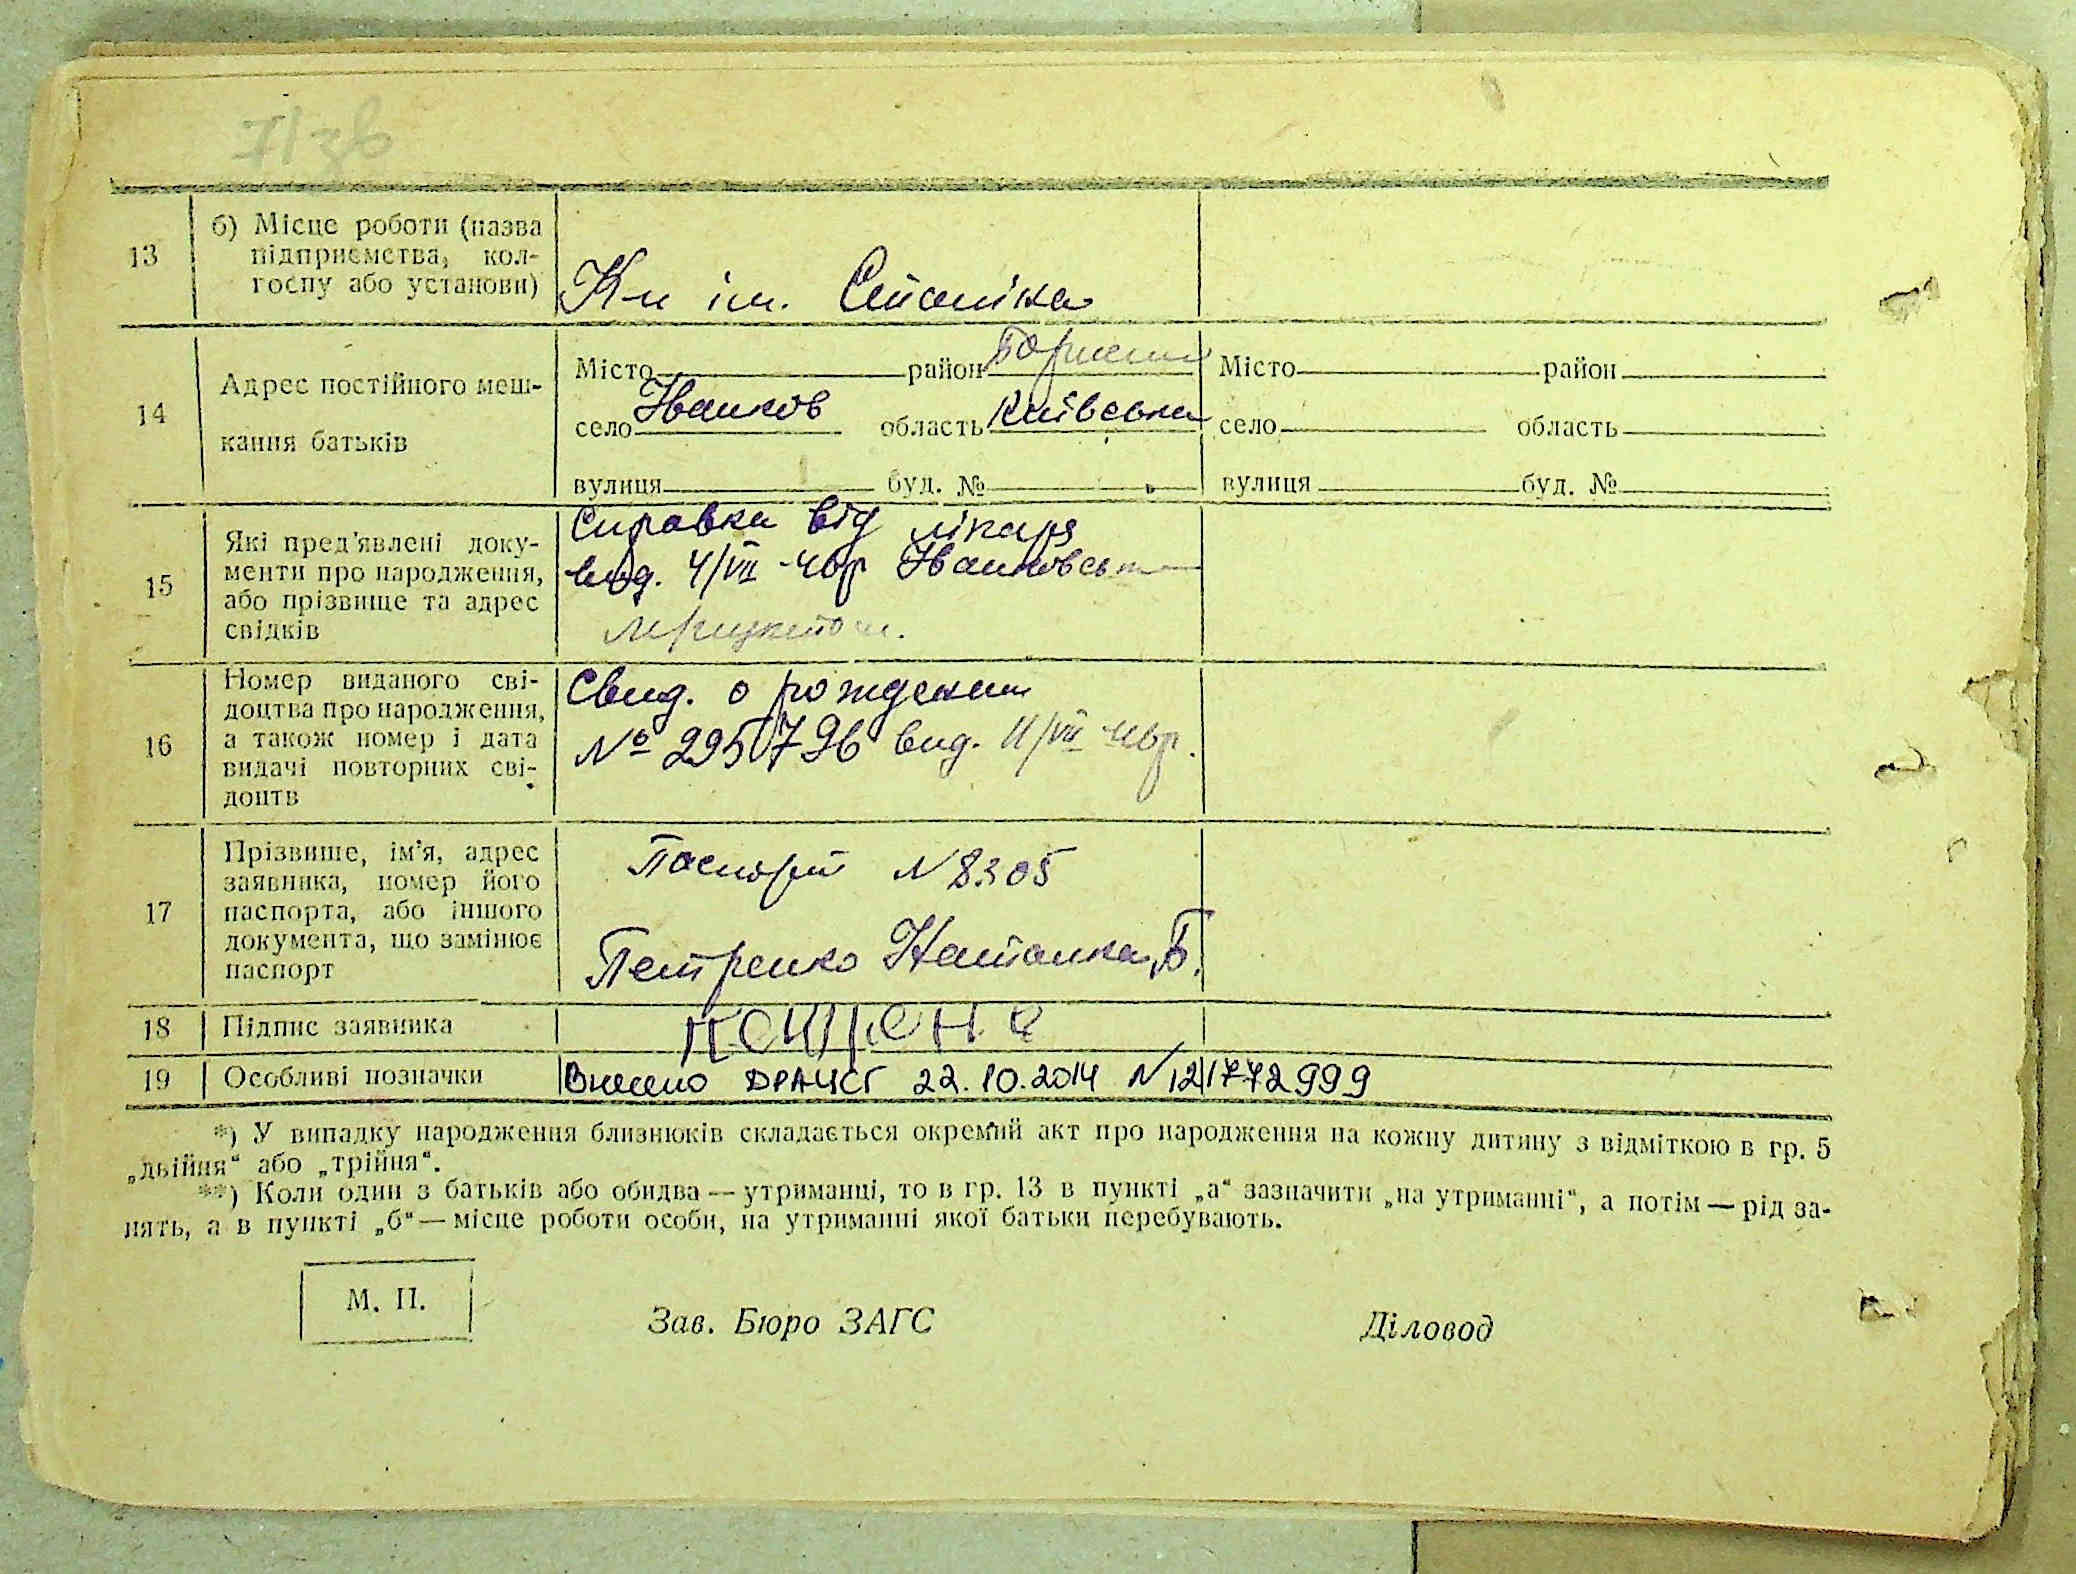 71зв
13
б) Місце роботи (назва
підприємства, кол-
госпу або установи)
К-п ім. Сталіна
14
Адрес постійного меш-
кання батьків
Місто район
село Іванков область Київська
вулиця буд. №
Місто район
село область
вулиця буд. №
15
Які пред’явлені доку-
менти про народження,
або прізвище та адрес
свідків
Справка від лікаря
вид. 4/VII-46р
16
Номер виданого сві-
доцтва про народження,
а також номер і дата
видачі повторних сві-
доцтв
Свид. о рождении
№ 295796 вид. 11/VII-46р.
17
Прізвище, ім’я, адрес
заявника, номер його
паспорта, або іншого
документа, що замінює
паспорт
Паспорт N 8305
Петренко Наталка Б.
18
Підпис заявника
19
Особливі позначки
Внесено ДРАЦСГ 22.10.2014 N 121772999
*) У випадку народження близнюків складається окремий акт про народження на кожну дитину з відміткою в гр. 5
„двійня“ або „трійня“.
**) Коли один з батьків або обидва — утриманці, то в гр. 13 в пункті „а“ зазначити „на утриманні“, а потім — рід за-
нять, а в пункті „б“ — місце роботи особи, на утриманні якої батьки перебувають.
М. П.
Зав. Бюро ЗАГС
Діловод